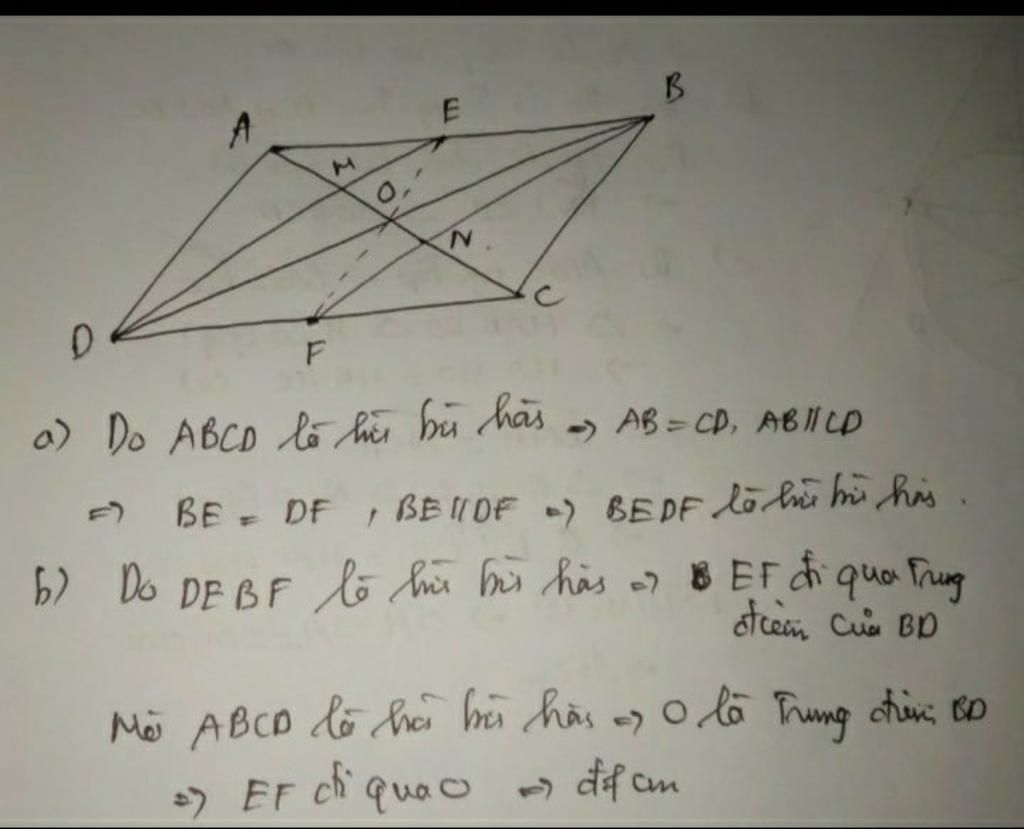 A E B
M O
N
D F C
a) Do ABCD là hình bình hành => AB = CD, AB // CD
=> BE = DF , BE // DF => BEDF là hình bình hành .
b) Do DEBF là hình bình hành => EF đi qua Trung
điểm của BD
Mà ABCD là hình bình hành => O là Trung điểm BD
=> EF đi qua O => đpcm